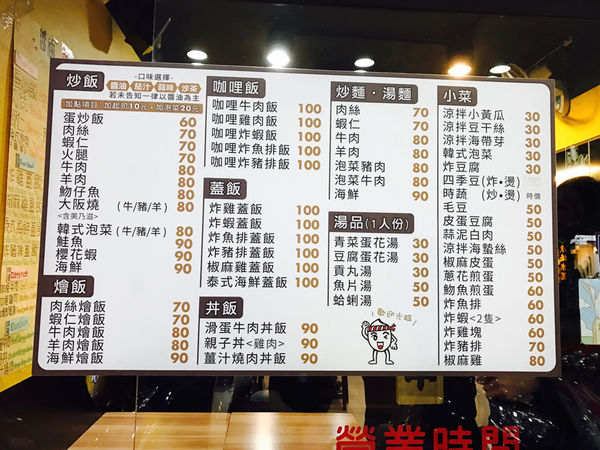 炒飯
-口味選擇-
醬油 茄汁 蒜味 沙茶
若未告知一律以醬油為主
加點項目：加起司10元，加泡菜20元
蛋炒飯 60
肉絲 70
蝦仁 70
火腿 70
牛肉 80
羊肉 80
魩仔魚 80
大阪燒 (牛/豬/羊) 80
<含美乃滋>
韓式泡菜(牛/豬/羊) 80
鮭魚 90
櫻花蝦 90
海鮮 90
燴飯
肉絲燴飯 70
蝦仁燴飯 70
牛肉燴飯 80
羊肉燴飯 80
海鮮燴飯 90
咖哩飯
咖哩牛肉飯 100
咖哩雞肉飯 100
咖哩炸蝦飯 100
咖哩炸魚排飯 100
咖哩炸豬排飯 100
蓋飯
炸雞蓋飯 100
炸蝦蓋飯 100
炸魚排蓋飯 100
炸豬排蓋飯 100
椒麻雞蓋飯 100
泰式海鮮蓋飯 100
丼飯
滑蛋牛肉丼飯 90
親子丼<雞肉> 90
薑汁燒肉丼飯 90
炒麵・湯麵
肉絲 70
蝦仁 70
牛肉 80
羊肉 80
泡菜豬肉 80
泡菜牛肉 80
海鮮 90
湯品(1人份)
青菜蛋花湯 30
豆腐蛋花湯 30
貢丸湯 30
魚片湯 50
蛤蜊湯 50
歡迎光臨
小菜
涼拌小黃瓜 30
涼拌豆干絲 30
涼拌海帶芽 30
韓式泡菜 30
炸豆腐 30
四季豆(炸・燙)
時蔬 (炒・燙) 時價
毛豆 50
皮蛋豆腐 50
蒜泥白肉 50
涼拌海蜇絲 50
椒麻皮蛋 50
蔥花煎蛋 50
魩魚煎蛋 60
炸魚排 60
炸蝦<2隻> 60
炸雞塊 60
炸豬排 70
椒麻雞 80
營業時間